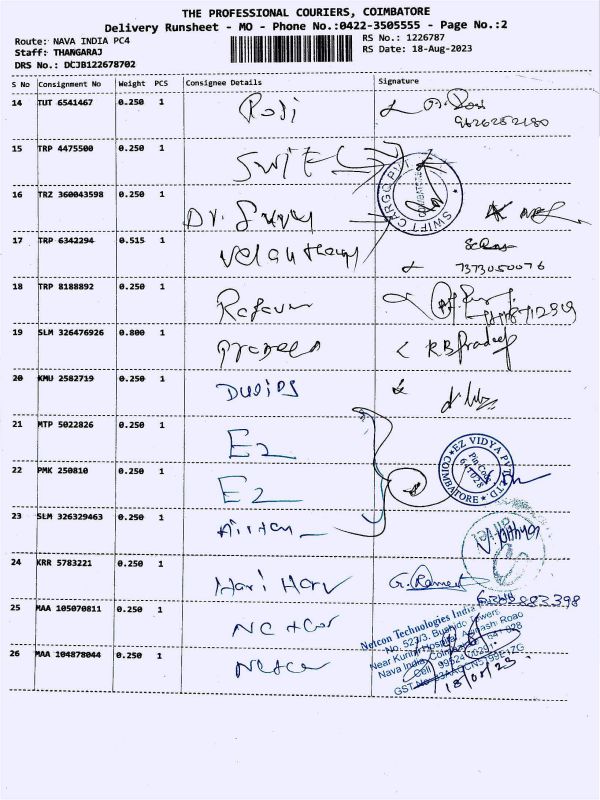 THE PROFESSIONAL COURIERS, COIMBATORE
Delivery Runsheet - MO - Phone No.:0422-3505555 - Page No.:2
Route: NAVA INDIA PC4
RS No.: 1226787
Staff: THANGARAJ
RS Date: 18-Aug-2023
DRS No.: DCJB122678702
S No Consignment No Weight PCS Consignee Details Signature
14 TUT 6541467 0.250 1
9626252180
15 TRP 4475500 0.250 1 SWIFT
SWIFT CARGO PVT
COIMBATORE
16 TRZ 360043598 0.250 1 Dr.
17 TRP 6342294 0.515 1
7373050076
18 TRP 8188892 0.250 1
19 SLM 326476926 0.800 1 Pradeep R B Pradeep
20 KMU 2582719 0.250 1
21 MTP 5022826 0.250 1 EZ
EZ VIDYA PVT LTD.
COIMBATORE
Pin Code
641028
22 PMK 250810 0.250 1 EZ
23 SLM 326329463 0.250 1
24 KRR 5783221 0.250 1 Hari Hara G. Ramesh
25 MAA 105070811 0.250 1 Netcon
Netcon Technologies India
No. 523/3, Bushido Towers
26 MAA 104878044 0.250 1 Netcon
18/08/23